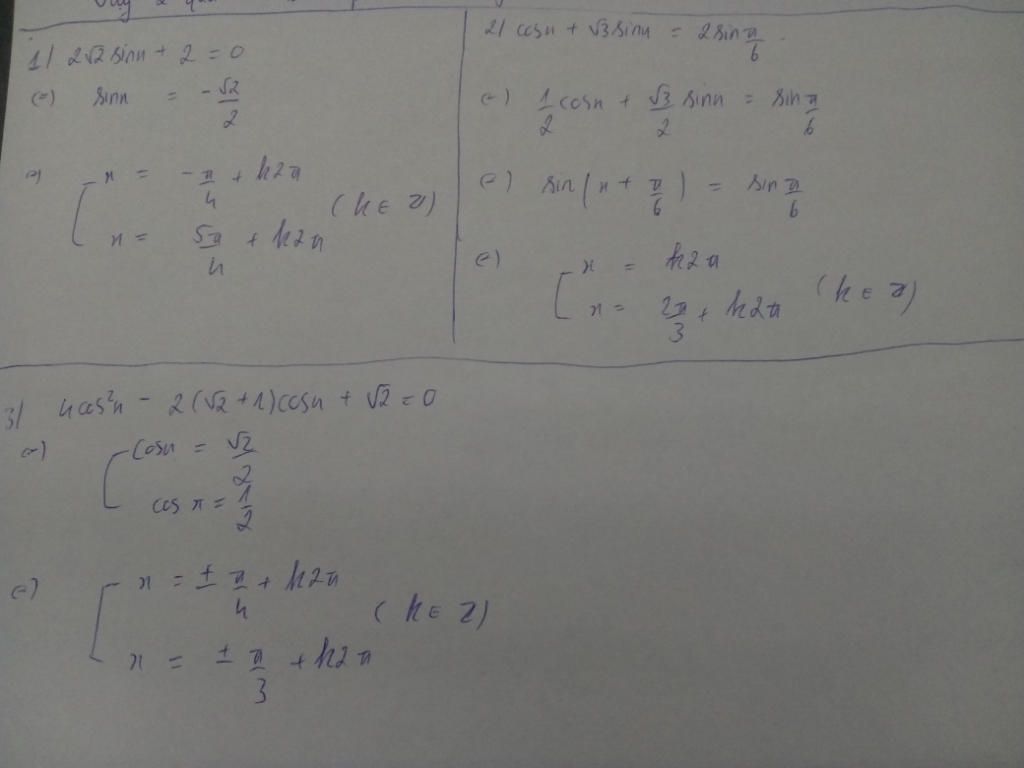 1) 2√2 sinx + 2 = 0
(=) sinx = -√2/2
(=) [ x = -π/4 + k2π
x = 5π/4 + k2π (k ∈ Z)
2) cosx + √3 sinx = 2sin π/6
(=) 1/2 cosx + √3/2 sinx = sin π/6
(=) sin(x + π/6) = sin π/6
(=) [ x = k2π
x = 2π/3 + k2π (k ∈ Z)
3) 4cos²x - 2(√2 + 1)cosx + √2 = 0
(=) [ cosx = √2/2
cos x = 1/2
(=) [ x = ± π/4 + k2π
x = ± π/3 + k2π (k ∈ Z)